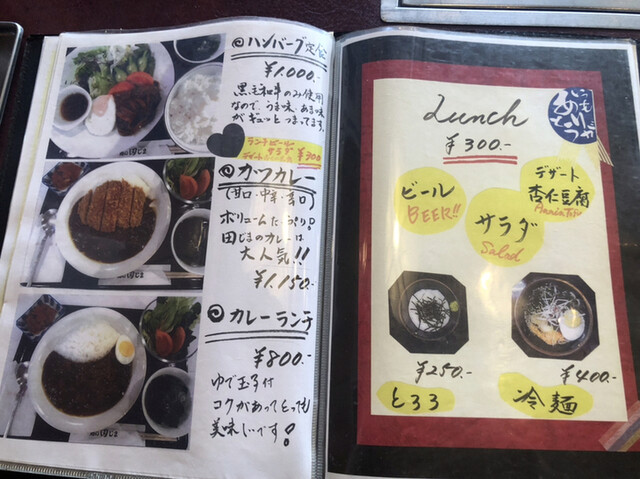 ◎ ハンバーグ定食
¥1.000.-
黒毛和牛のみ使用
なので、うま味、あま味
がギュッとつまってます。
ランチビール
サラダ
¥300
◎ カツカレー
(甘口・中辛・辛口)
ボリュームたっぷり!
田じまのカレーは
大人気!!
¥1.150.-
◎ カレーランチ
¥800.-
ゆで玉子付
コクがあってとっても
美味しいです!
Lunch
¥300.-
ビール
BEER!!
サラダ
Salad
デザート
杏仁豆腐
¥250.-
とろろ
¥400.-
冷麺